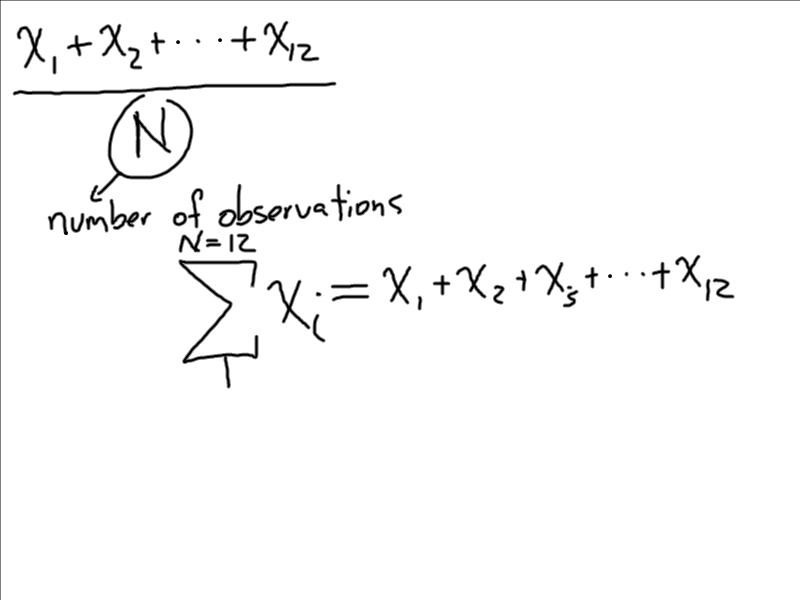 X₁ + X₂ + ··· + X₁₂
N
number of observations
N = 12
∑ Xᵢ = X₁ + X₂ + X₃ + ··· + X₁₂
1